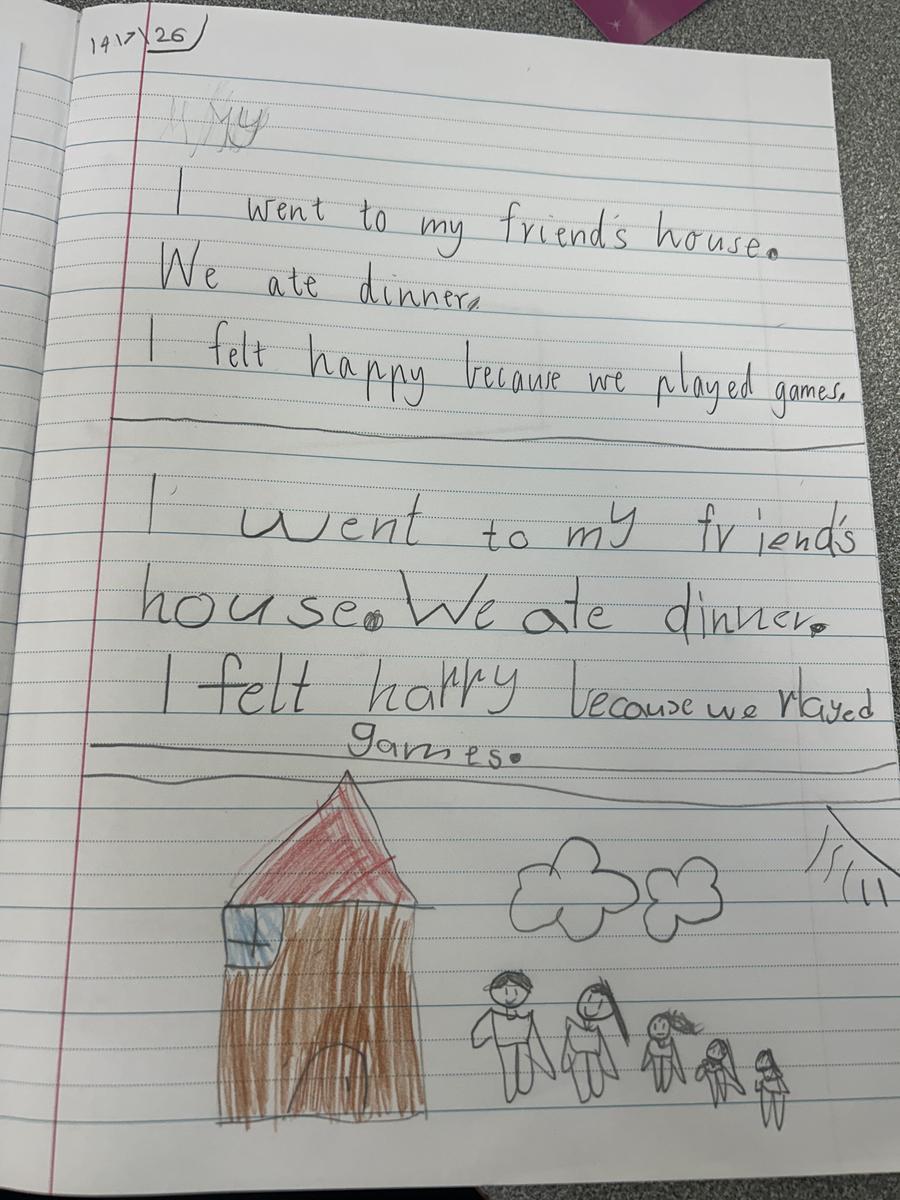 14\7\26
My
I went to my friend's house.
We ate dinner.
I felt happy because we played games.
I went to my friend's
house. We ate dinner.
I felt happy because we played
games.